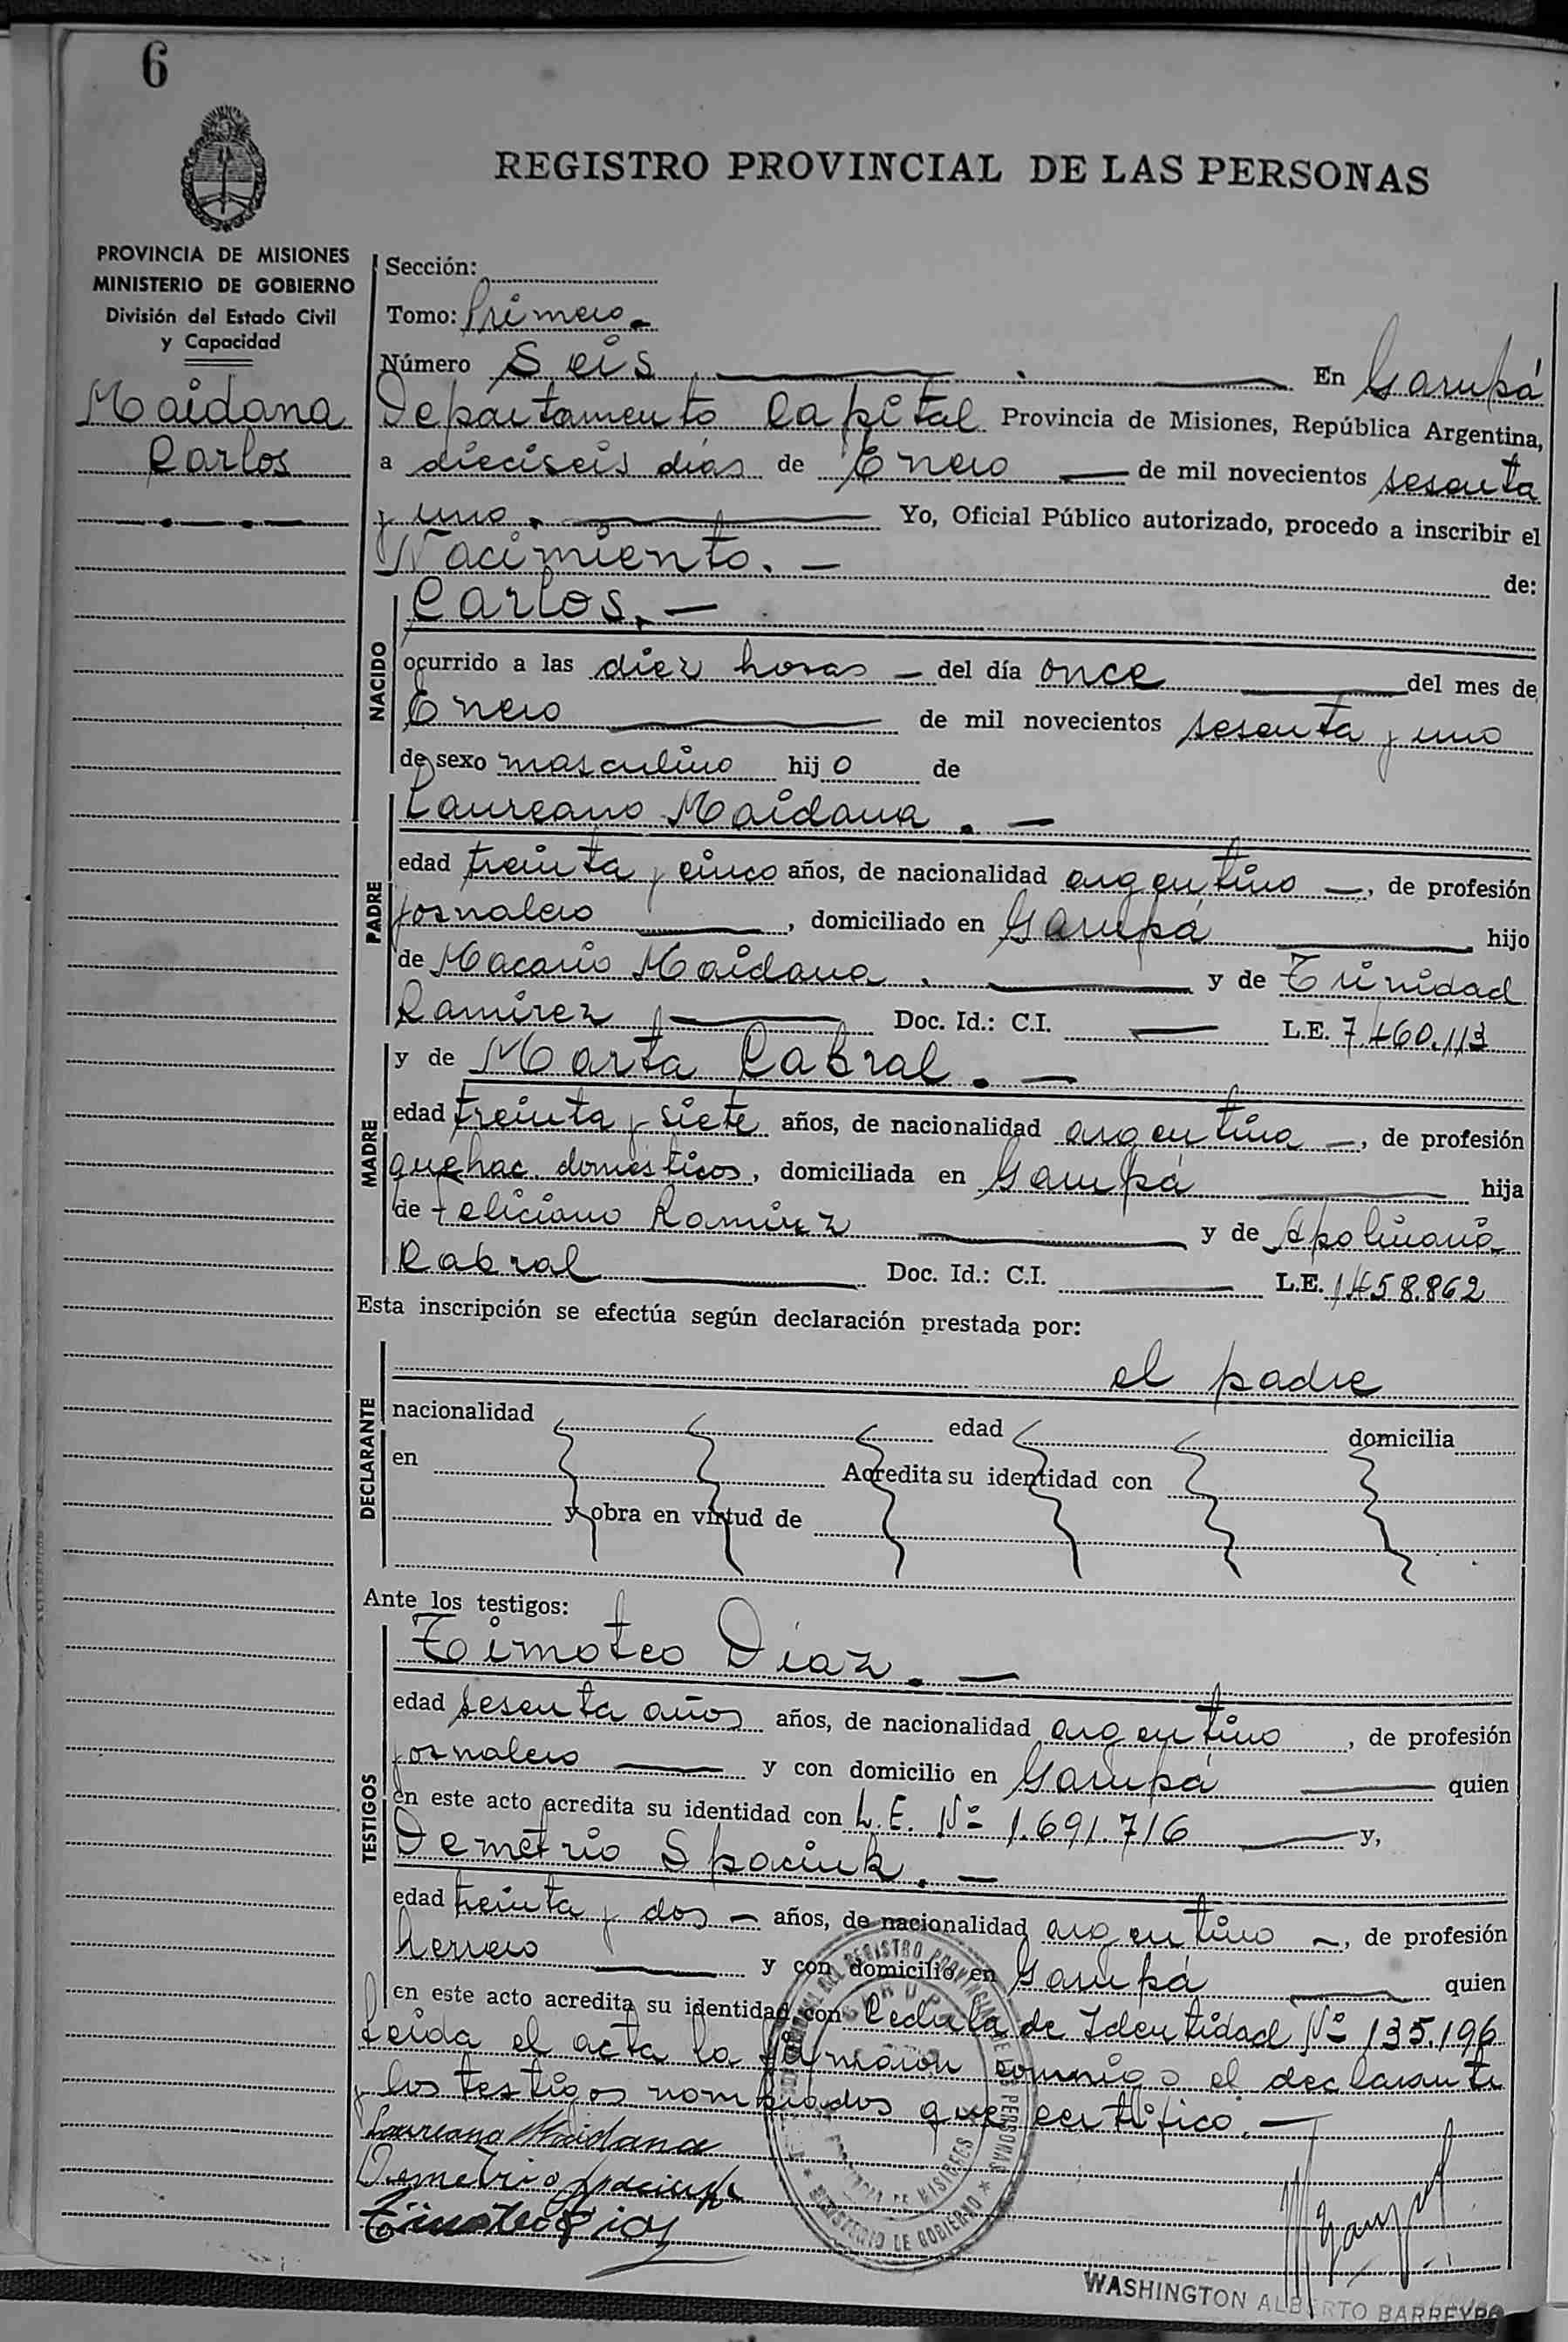 6
REGISTRO PROVINCIAL DE LAS PERSONAS
PROVINCIA DE MISIONES
MINISTERIO DE GOBIERNO
División del Estado Civil
y Capacidad
Maidana
Carlos
Sección:
Tomo: Primero.
Número Seis En Garupá
Departamento Capital Provincia de Misiones, República Argentina,
a dieciseis días de Enero de mil novecientos sesenta
y uno. Yo, Oficial Público autorizado, procedo a inscribir el
Nacimiento. — de:
NACIDO
Carlos. —
ocurrido a las diez horas — del día once del mes de
Enero de mil novecientos sesenta y uno
de sexo masculino hijo de
PADRE
Laureano Maidana. —
edad treinta y cinco años, de nacionalidad argentino —, de profesión
jornalero, domiciliado en Garupá hijo
de Macario Maidana y de Trinidad
Ramírez Doc. Id.: C.I. — L.E. 7.460.113
MADRE
y de Marta Cabral. —
edad treinta y siete años, de nacionalidad argentina —, de profesión
quehac. domésticos, domiciliada en Garupá hija
de Feliciano Ramírez y de Apolinaria
Cabral Doc. Id.: C.I. — L.E. 1458.862
Esta inscripción se efectúa según declaración prestada por:
DECLARANTE
el padre
nacionalidad edad domicilia
en Acredita su identidad con
y obra en virtud de
Ante los testigos:
TESTIGOS
Timoteo Diaz. —
edad sesenta años años, de nacionalidad argentino, de profesión
jornalero y con domicilio en Garupá quien
en este acto acredita su identidad con L.E. Nº 1.691.716 y,
Demetrio Spaciuk. —
edad treinta y dos — años, de nacionalidad argentino —, de profesión
herrero y con domicilio en Garupá quien
en este acto acredita su identidad con Cedula de Identidad Nº 135.196
Leida el acta la firmaron conmigo el declarante
y los testigos nombrados que certifico. —
Laureano Maidana
Demetrio Spaciuk
Timoteo Diaz
REGISTRO PROVINCIAL DE LAS PERSONAS
GARUPA
PROVINCIA DE MISIONES
* MINISTERIO DE GOBIERNO *
WASHINGTON ALBERTO BARREYRO